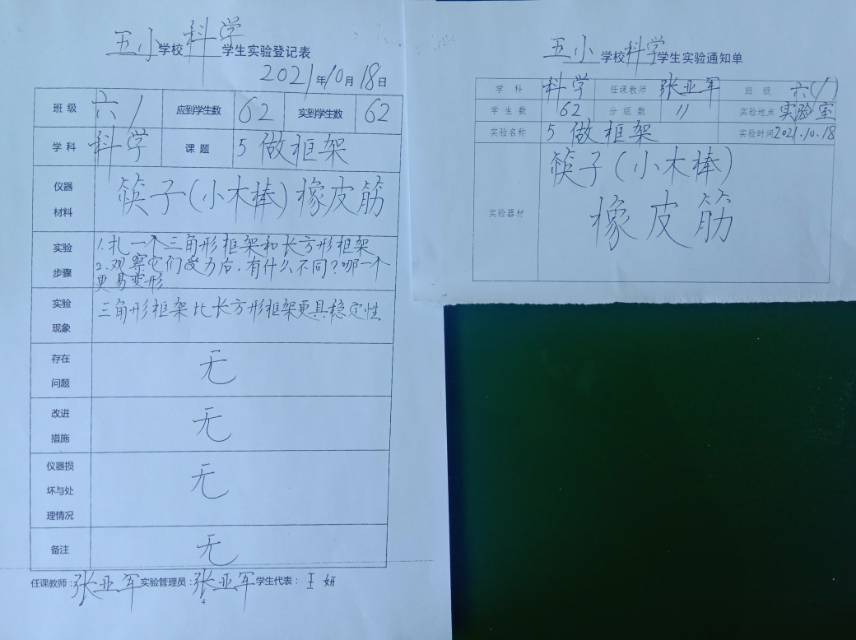 五小学校科学学生实验登记表
2021年10月18日
班级 六1 应到学生数 62 实到学生数 62
学科 科学 课题 5 做框架
仪器材料 筷子(小木棒)橡皮筋
实验步骤 1.扎一个三角形框架和长方形框架
2.观察它们受力后,有什么不同?哪一个
更易变形
实验现象 三角形框架比长方形框架更具稳定性
存在问题 无
改进措施 无
仪器损坏与处理情况 无
备注 无
任课教师:张亚军 实验管理员:张亚军 学生代表:王妍
五小学校科学学生实验通知单
学科 科学 任课教师 张亚军 班级 六(1)
学生数 62 分组数 11 实验地点 实验室
实验名称 5 做框架 实验时间 2021.10.18
实验器材 筷子(小木棒)
橡皮筋